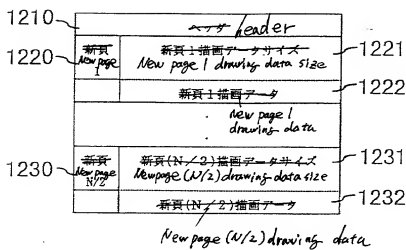 1210 ヘッダ header
1220 新頁 New page 1 新頁1描画データサイズ 1221
New page 1 drawing data size
新頁1描画データ 1222
New page 1
drawing data
1230 新頁 New page N/2 新頁(N/2)描画データサイズ 1231
New page (N/2) drawing data size
新頁(N/2)描画データ 1232
New page (N/2) drawing data